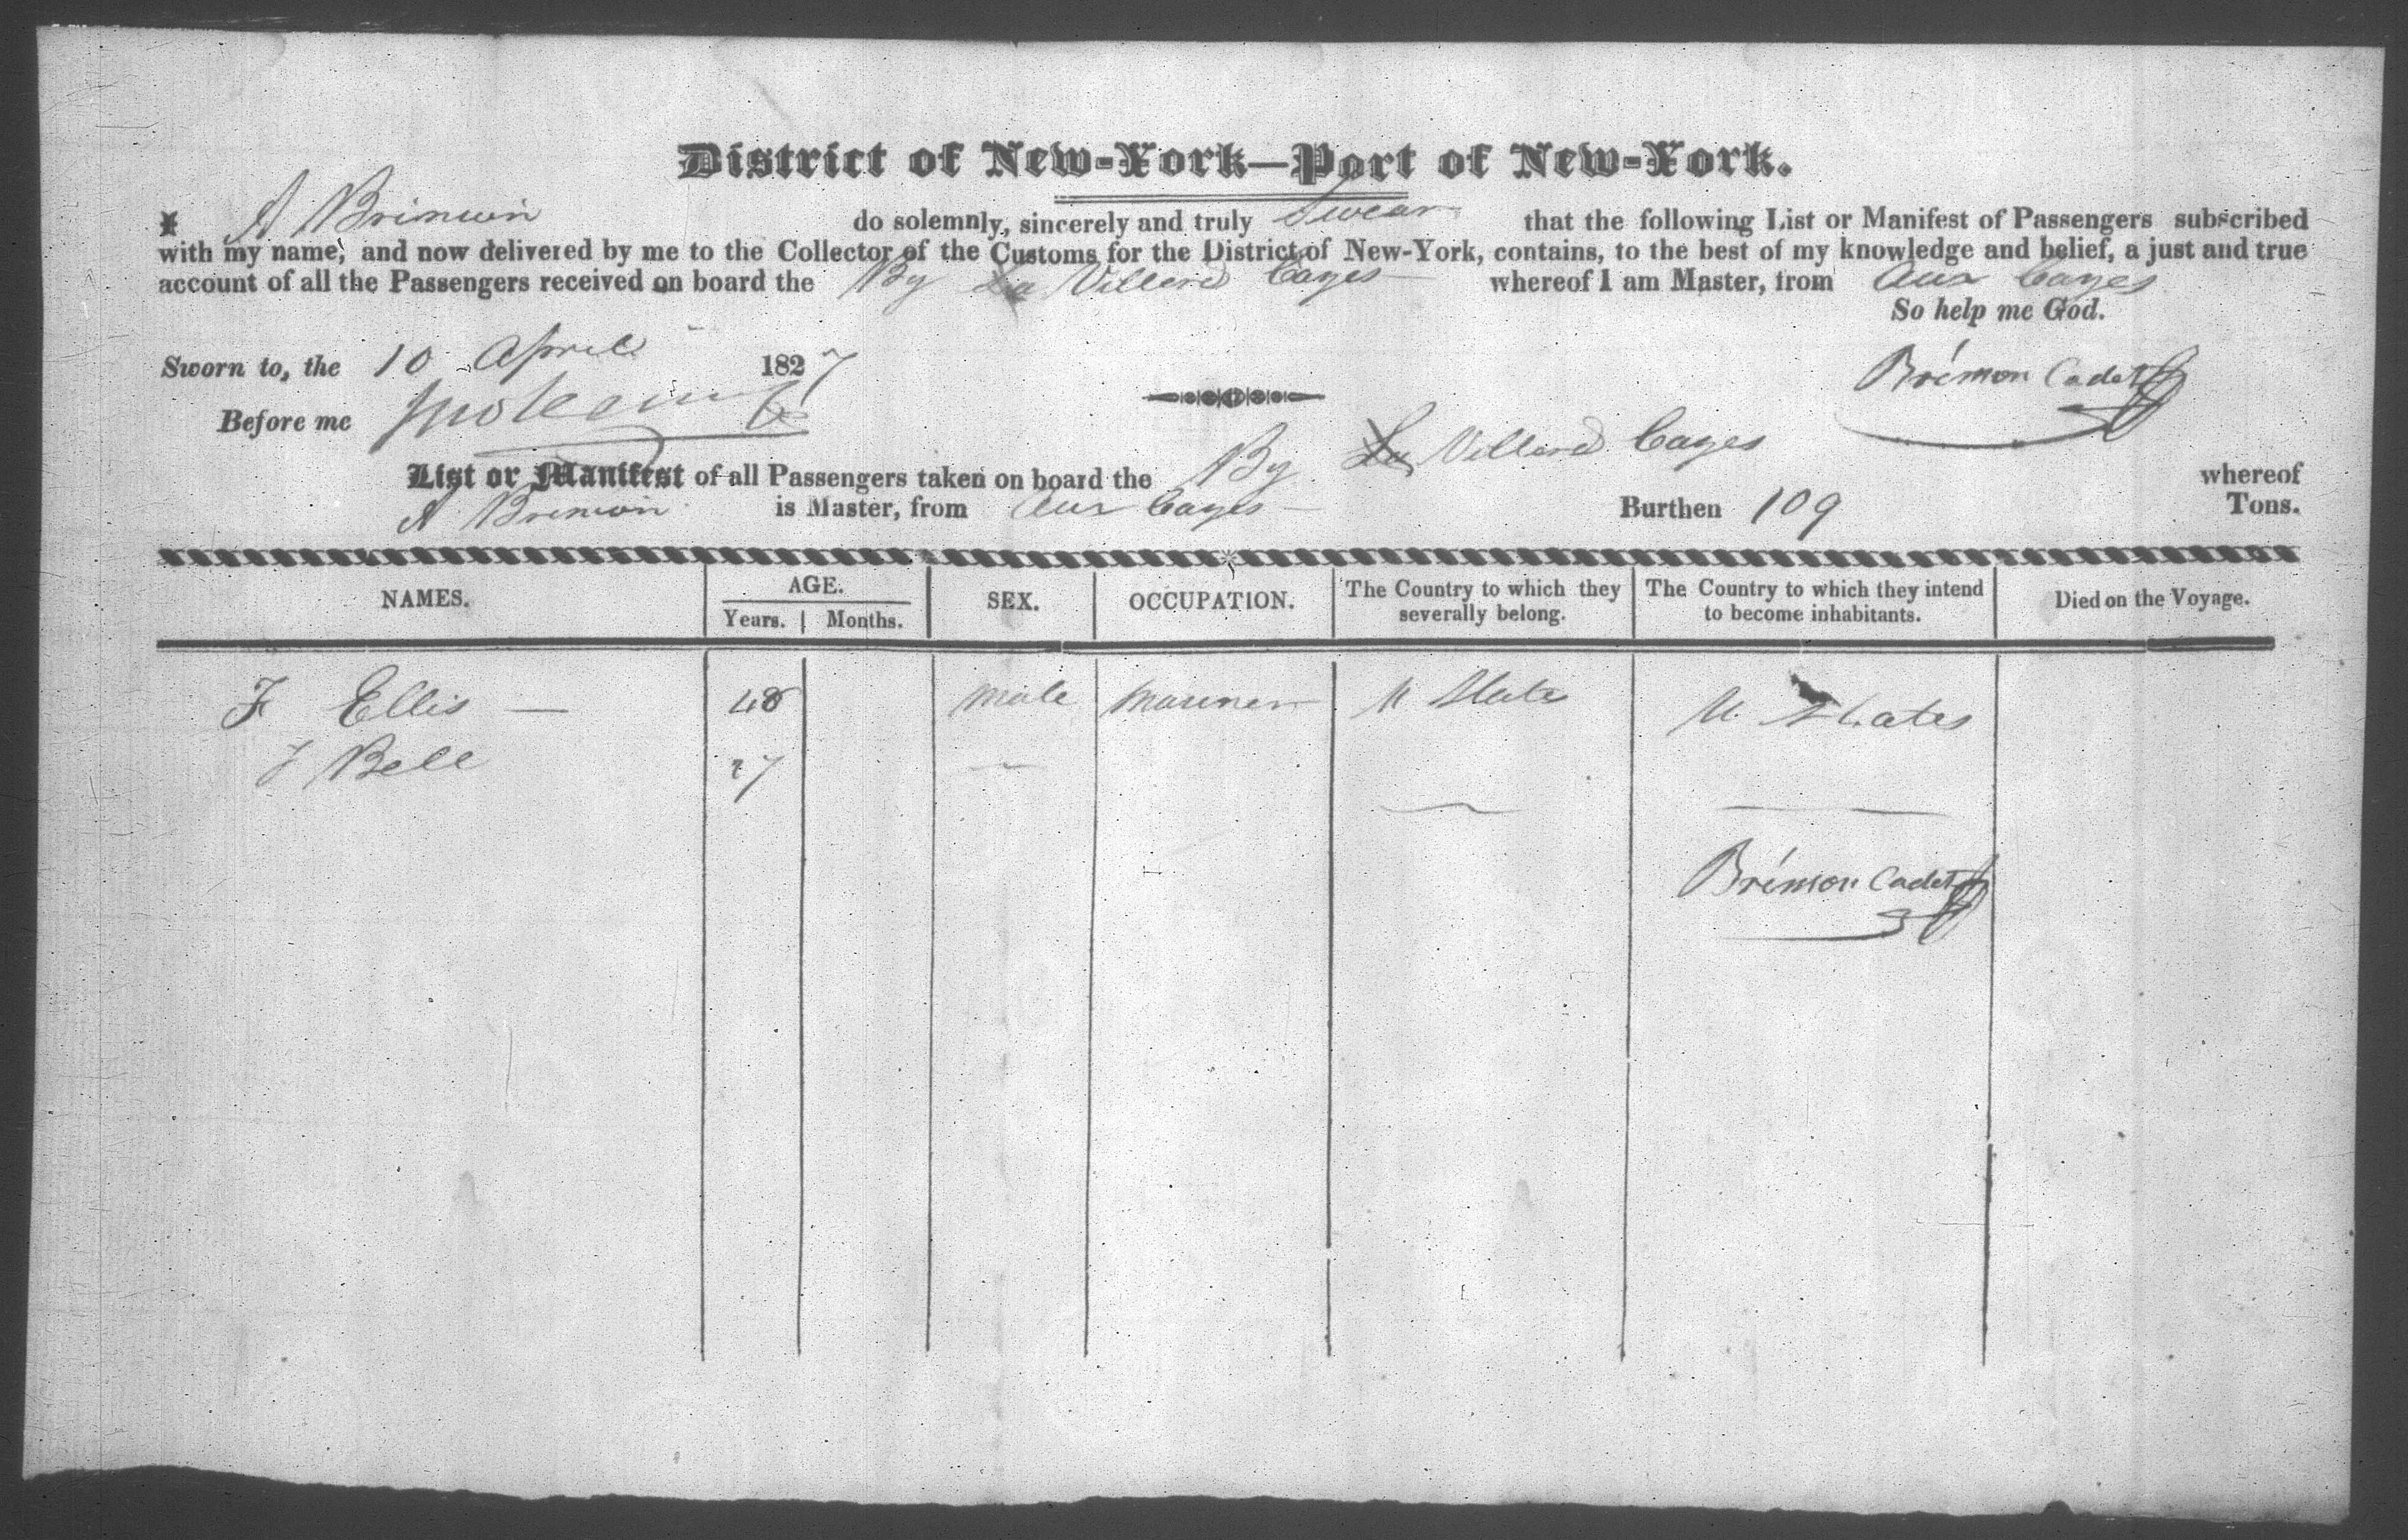 District of New-York—Port of New-York.
I A Brimon do solemnly, sincerely and truly Swear that the following List or Manifest of Passengers subscribed
with my name, and now delivered by me to the Collector of the Customs for the District of New-York, contains, to the best of my knowledge and belief, a just and true
account of all the Passengers received on board the Bg La Villere Cayes whereof I am Master, from Aux Cayes
So help me God.
Sworn to, the 10 April 1827
Brémon Cadet
Before me
List or Manifest of all Passengers taken on board the Bg La Villere Cayes whereof
A Bremon is Master, from Aux Cayes Burthen 109 Tons.
NAMES. AGE. SEX. OCCUPATION. The Country to which they severally belong. The Country to which they intend to become inhabitants. Died on the Voyage.
Years. Months.
F Ellis — 48 Male Mariner U States U. States
J Bell 27
Brémon Cadet